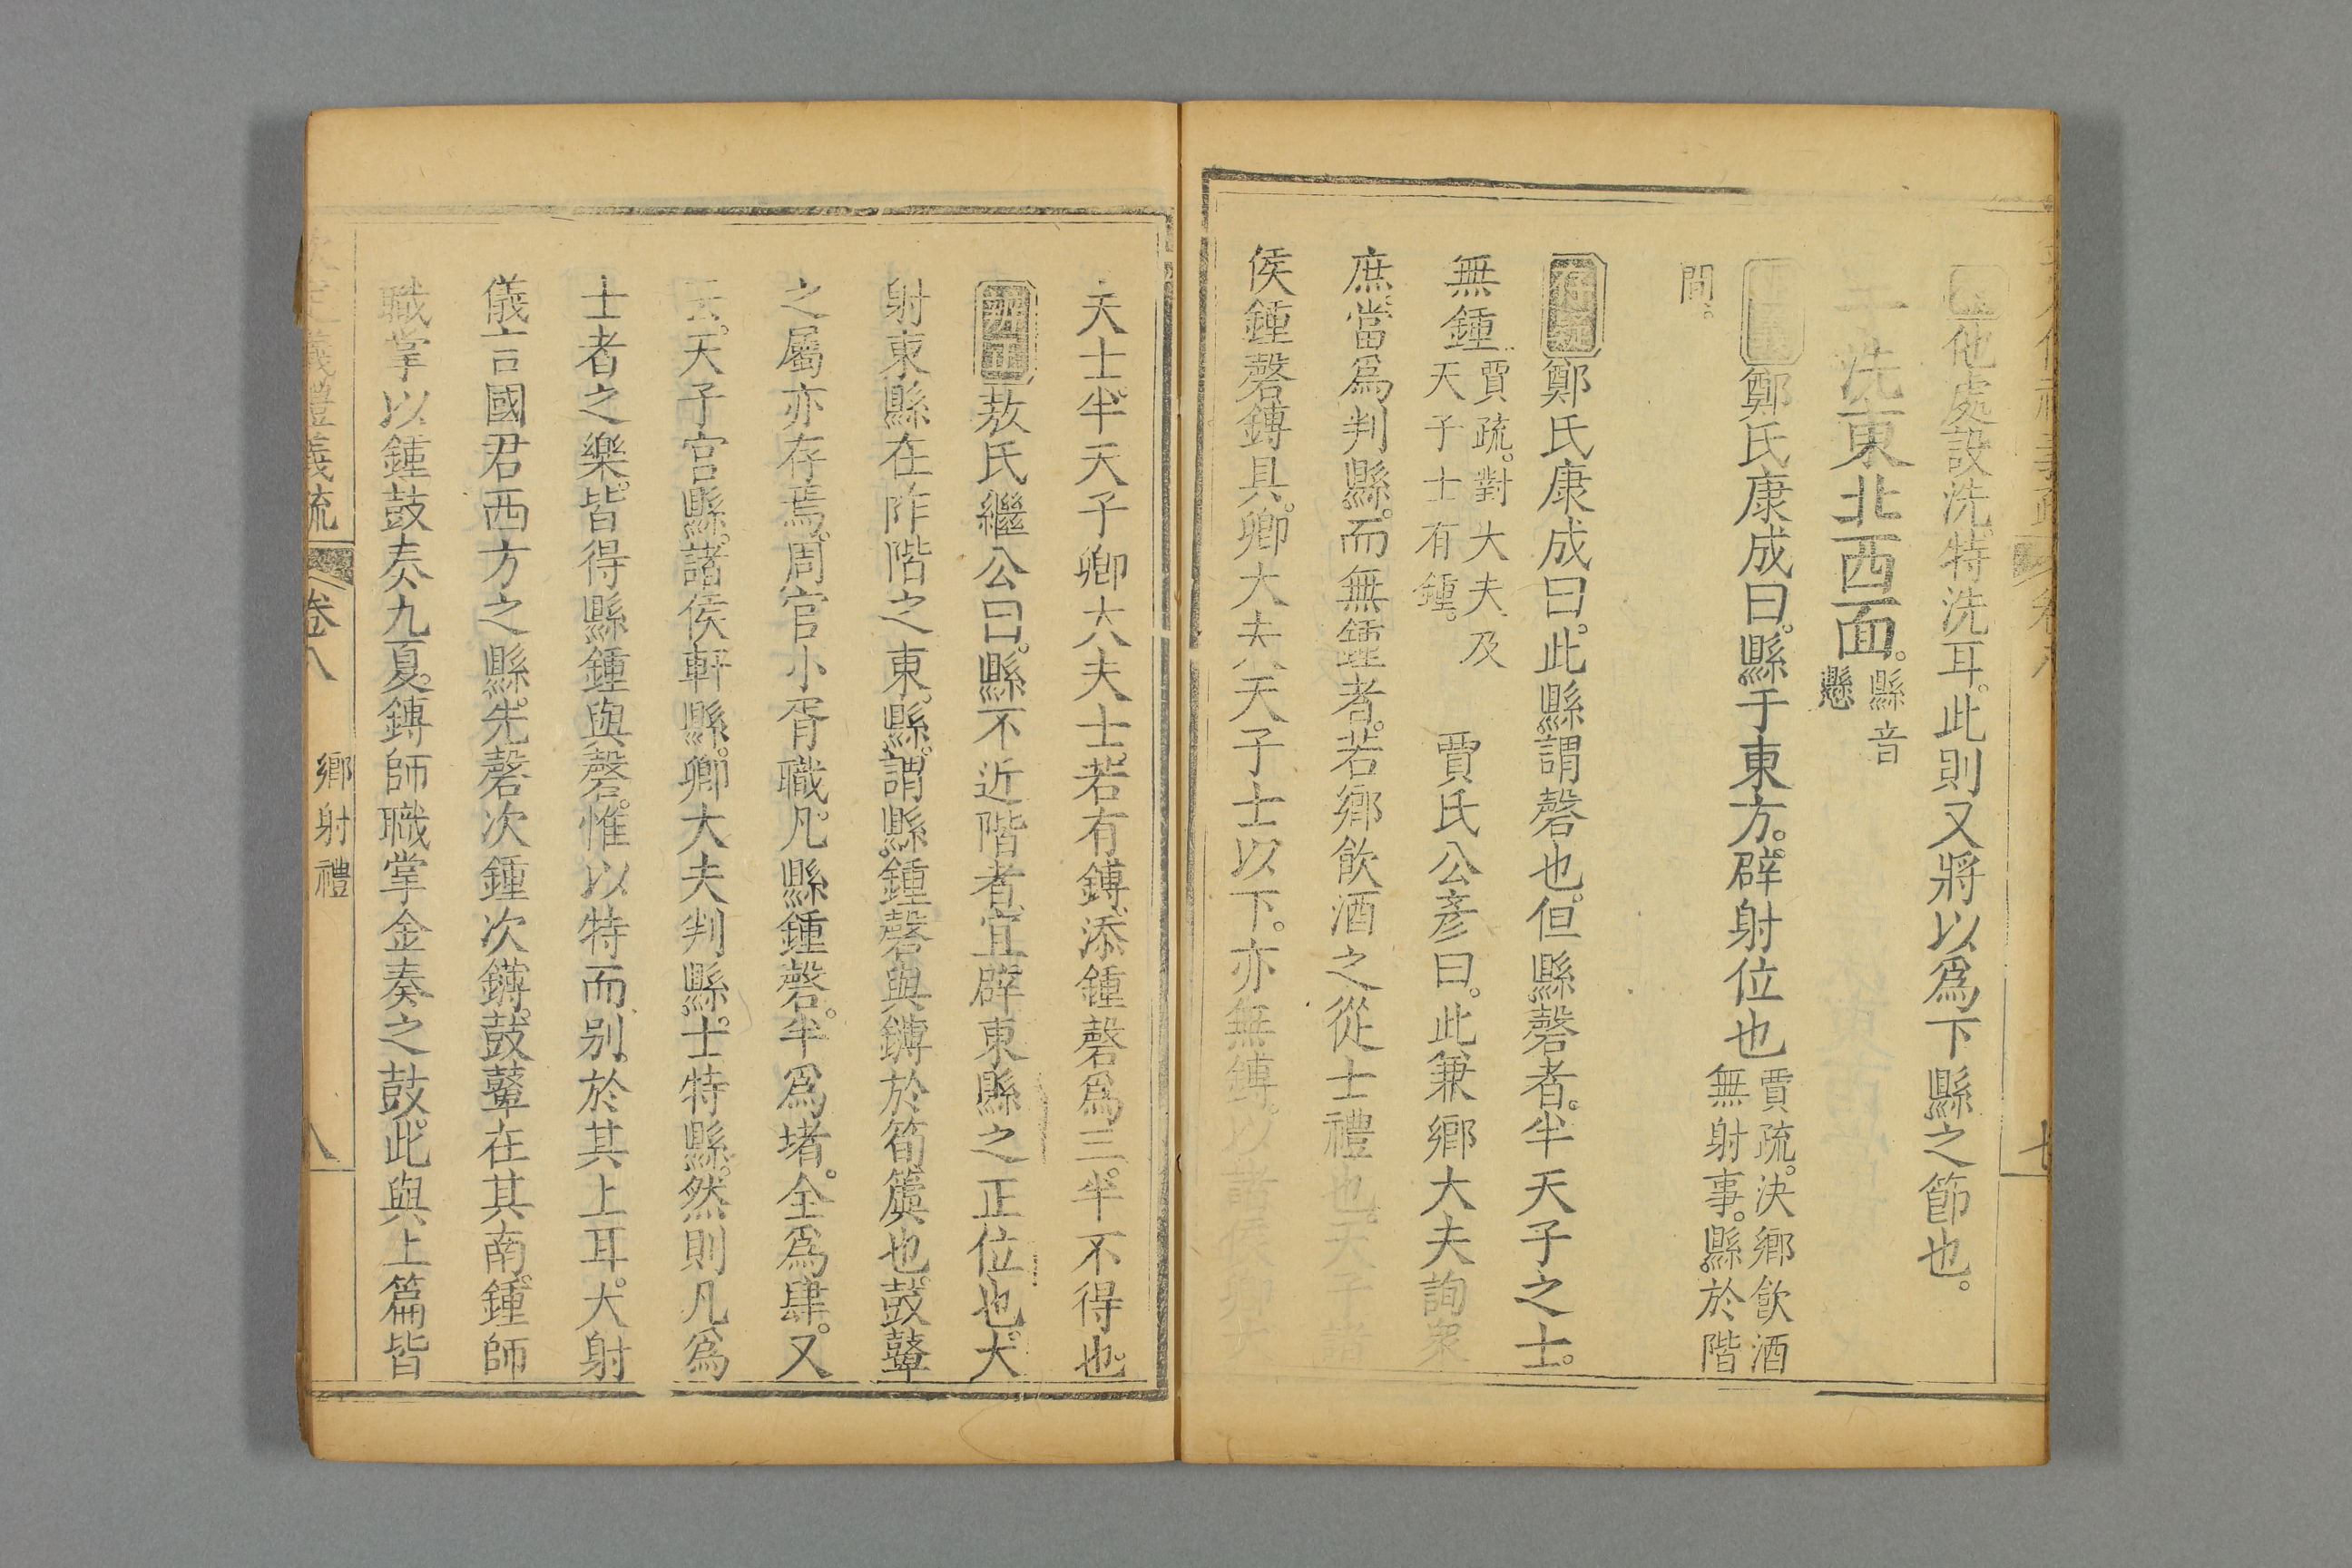 他處設洗特洗耳此則又將以爲下縣之節也。
于洗東北西面。縣音懸
鄭氏康成曰。縣于東方。辟射位也賈疏。決鄉飲酒無射事。縣於階
間。
存疑鄭氏康成曰。此縣謂磬也。但縣磬者。半天子之士。
無鍾賈疏。對大夫及天子士有鍾。 賈氏公彥曰。此兼鄉大夫詢衆
庶當爲判縣。而無鍾者。若鄉飲酒之從士禮也。天子諸
侯鍾磬鎛具。卿大夫天子士以下。亦無鎛。以諸侯卿大
夫士半天子卿大夫士。若有鎛。添鍾磬爲三。半不得也。
辨正敖氏繼公曰。縣不近階者。宜辟東縣之正位也。大
射東縣在阼階之東。縣。謂縣。鍾磬與鎛於筍簴也。鼓鼙
之屬亦存焉。周官小胥職。凡縣鍾磬。半爲堵。全爲肆。又
云。天子宮縣。諸侯軒縣。卿大夫判縣。士特縣。然則凡爲
士者之樂。皆得縣鍾與磬。惟以特而别於其上耳。大射
儀言國君西方之縣。先磬次鍾次鎛。鼓鼙在其南。鍾師
職掌以鍾鼓奏九夏。鎛師職掌金奏之鼓。此與上篇皆
欽定儀禮義疏 卷八 鄉射禮 八
七